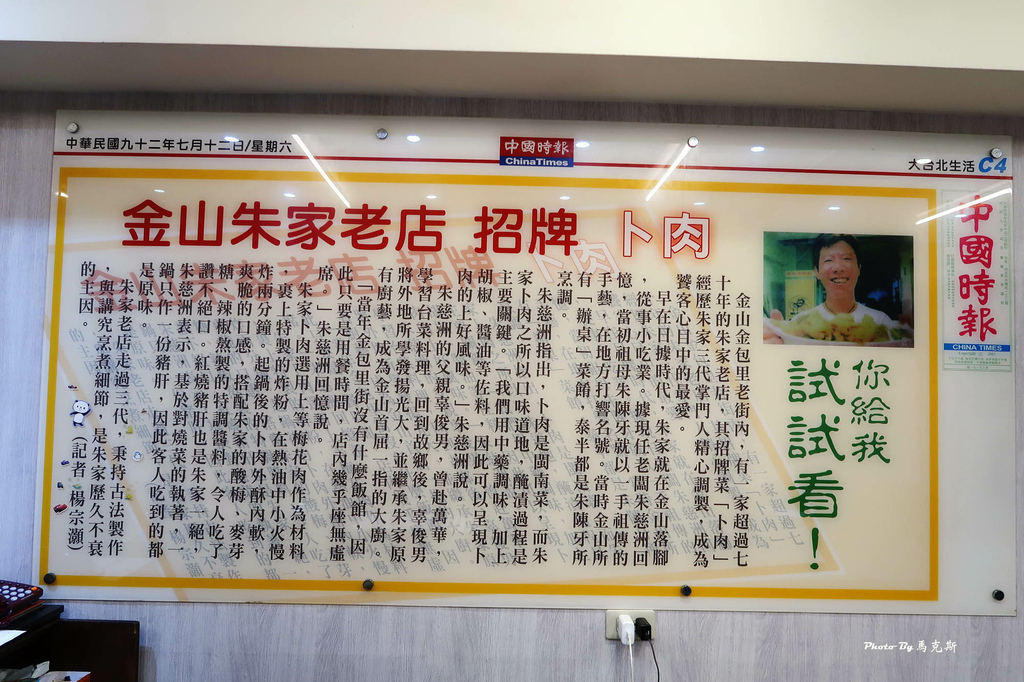 中華民國九十二年七月十二日/星期六
中國時報
ChinaTimes
大台北生活 C4
金山朱家老店 招牌 卜肉
中國時報
CHINA TIMES
你給我
試試看！
金山金包里老街內，有一家超過七
十年的朱家老店，其招牌菜「卜肉」
經歷朱家三代掌門人精心調製，成為
饕客心目中的最愛。
早在日據時代，朱家就在金山落腳
，從事小吃業。據現任老闆朱慈洲回
憶，當初祖母朱陳牙就以一手祖傳的
手藝，在地方打響名號。當時金山所
有「辦桌」菜餚，泰半都是朱陳牙所
烹調。
朱慈洲指出，卜肉是閩南菜，而朱
家卜肉之所以口味道地，醃漬過程是
主要關鍵。「我們用中藥調味，加上
胡椒、醬油等佐料，因此可以呈現卜
肉的上好風味。」朱慈洲說。
朱慈洲的父親辜俊男，曾赴萬華，
學習台菜料理，回到故鄉後，辜俊男
將外地所學發揚光大，並繼承朱家原
有廚藝，成為金山首屈一指的大廚。
「當年金包里街沒有什麼飯館，因
此只要是用餐時間，店內幾乎座無虛
席」朱慈洲回憶說。
朱家卜肉選用上等梅花肉作為材料
，裹上特製的炸粉，在熱油中小火慢
炸兩分鐘。起鍋後的卜肉外酥內軟，
爽脆的口感，搭配朱家的酸梅、麥芽
糖、辣椒熬製的特調醬料，令人吃了
讚不絕口。紅燒豬肝也是朱家一絕，
朱慈洲表示，基於對燒菜的執著，一
鍋只作一份豬肝，因此客人吃到的都
是原味。
朱家老店走過三代，秉持古法製作
與講究烹煮細節，是朱家歷久不衰
的主因。 （記者 楊宗灝）
Photo By 馬克斯